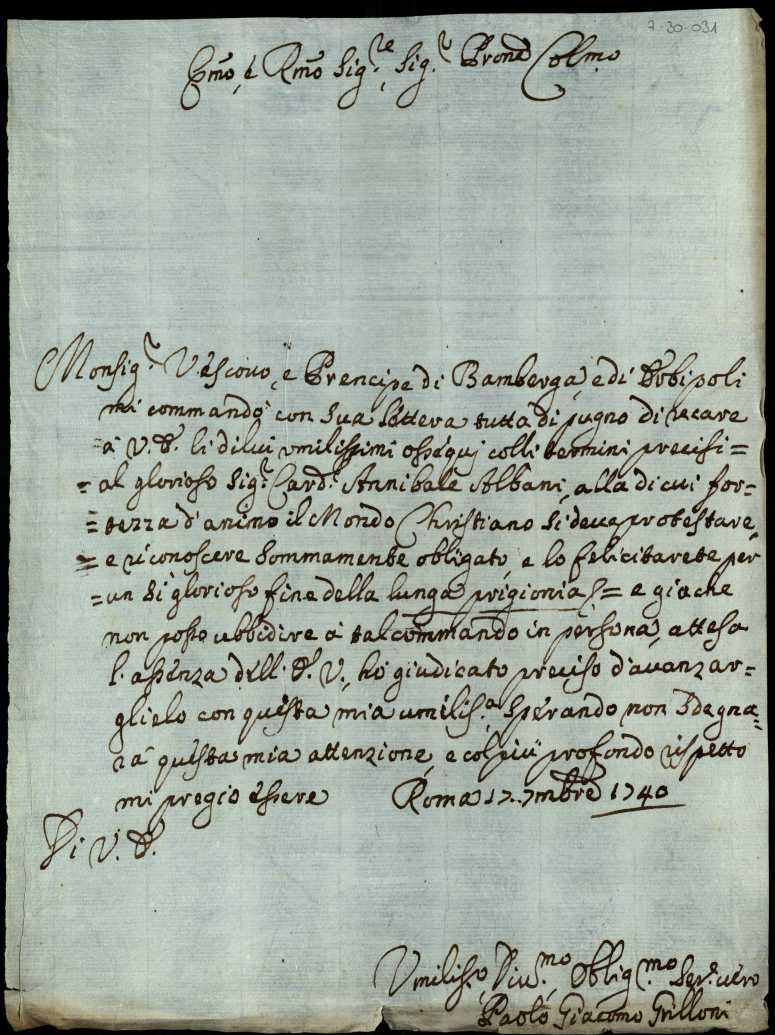 7-30-031
Emo, é Rmo Sig.re, Sig.r Prone Colmo
Monsig.r Vescouo, e Prencipe di Bamberga, e di Erbipoli
mi commandò con sua lettera tutta di pugno di recare
= à V. E. li di lui vmilissimi ossequj colli termini precisi =
= al glorioso Sig.r Card.l Annibale Albani, alla di cui for=
= tezza d'animo il Mondo Christiano si deue protestare,
= e riconoscere sommamente obligato, e lo felicitarete per
= un si glorioso fine della lunga prigionia = e giache
non posso ubbidire à tal commando in persona, attesa
l'assenza dell'E. V., hò giudicato preciso d'auanzar=
glielo con questa mia umiliss.a sperando non sdegna=
rà questa mia attenzione, e col più profondo rispetto
mi pregio essere Roma 17. 7mbre 1740
Di V. E.
Vmiliss.o, Diu.mo, Oblig.mo Ser.e uero
Paolo Giacomo Grilloni